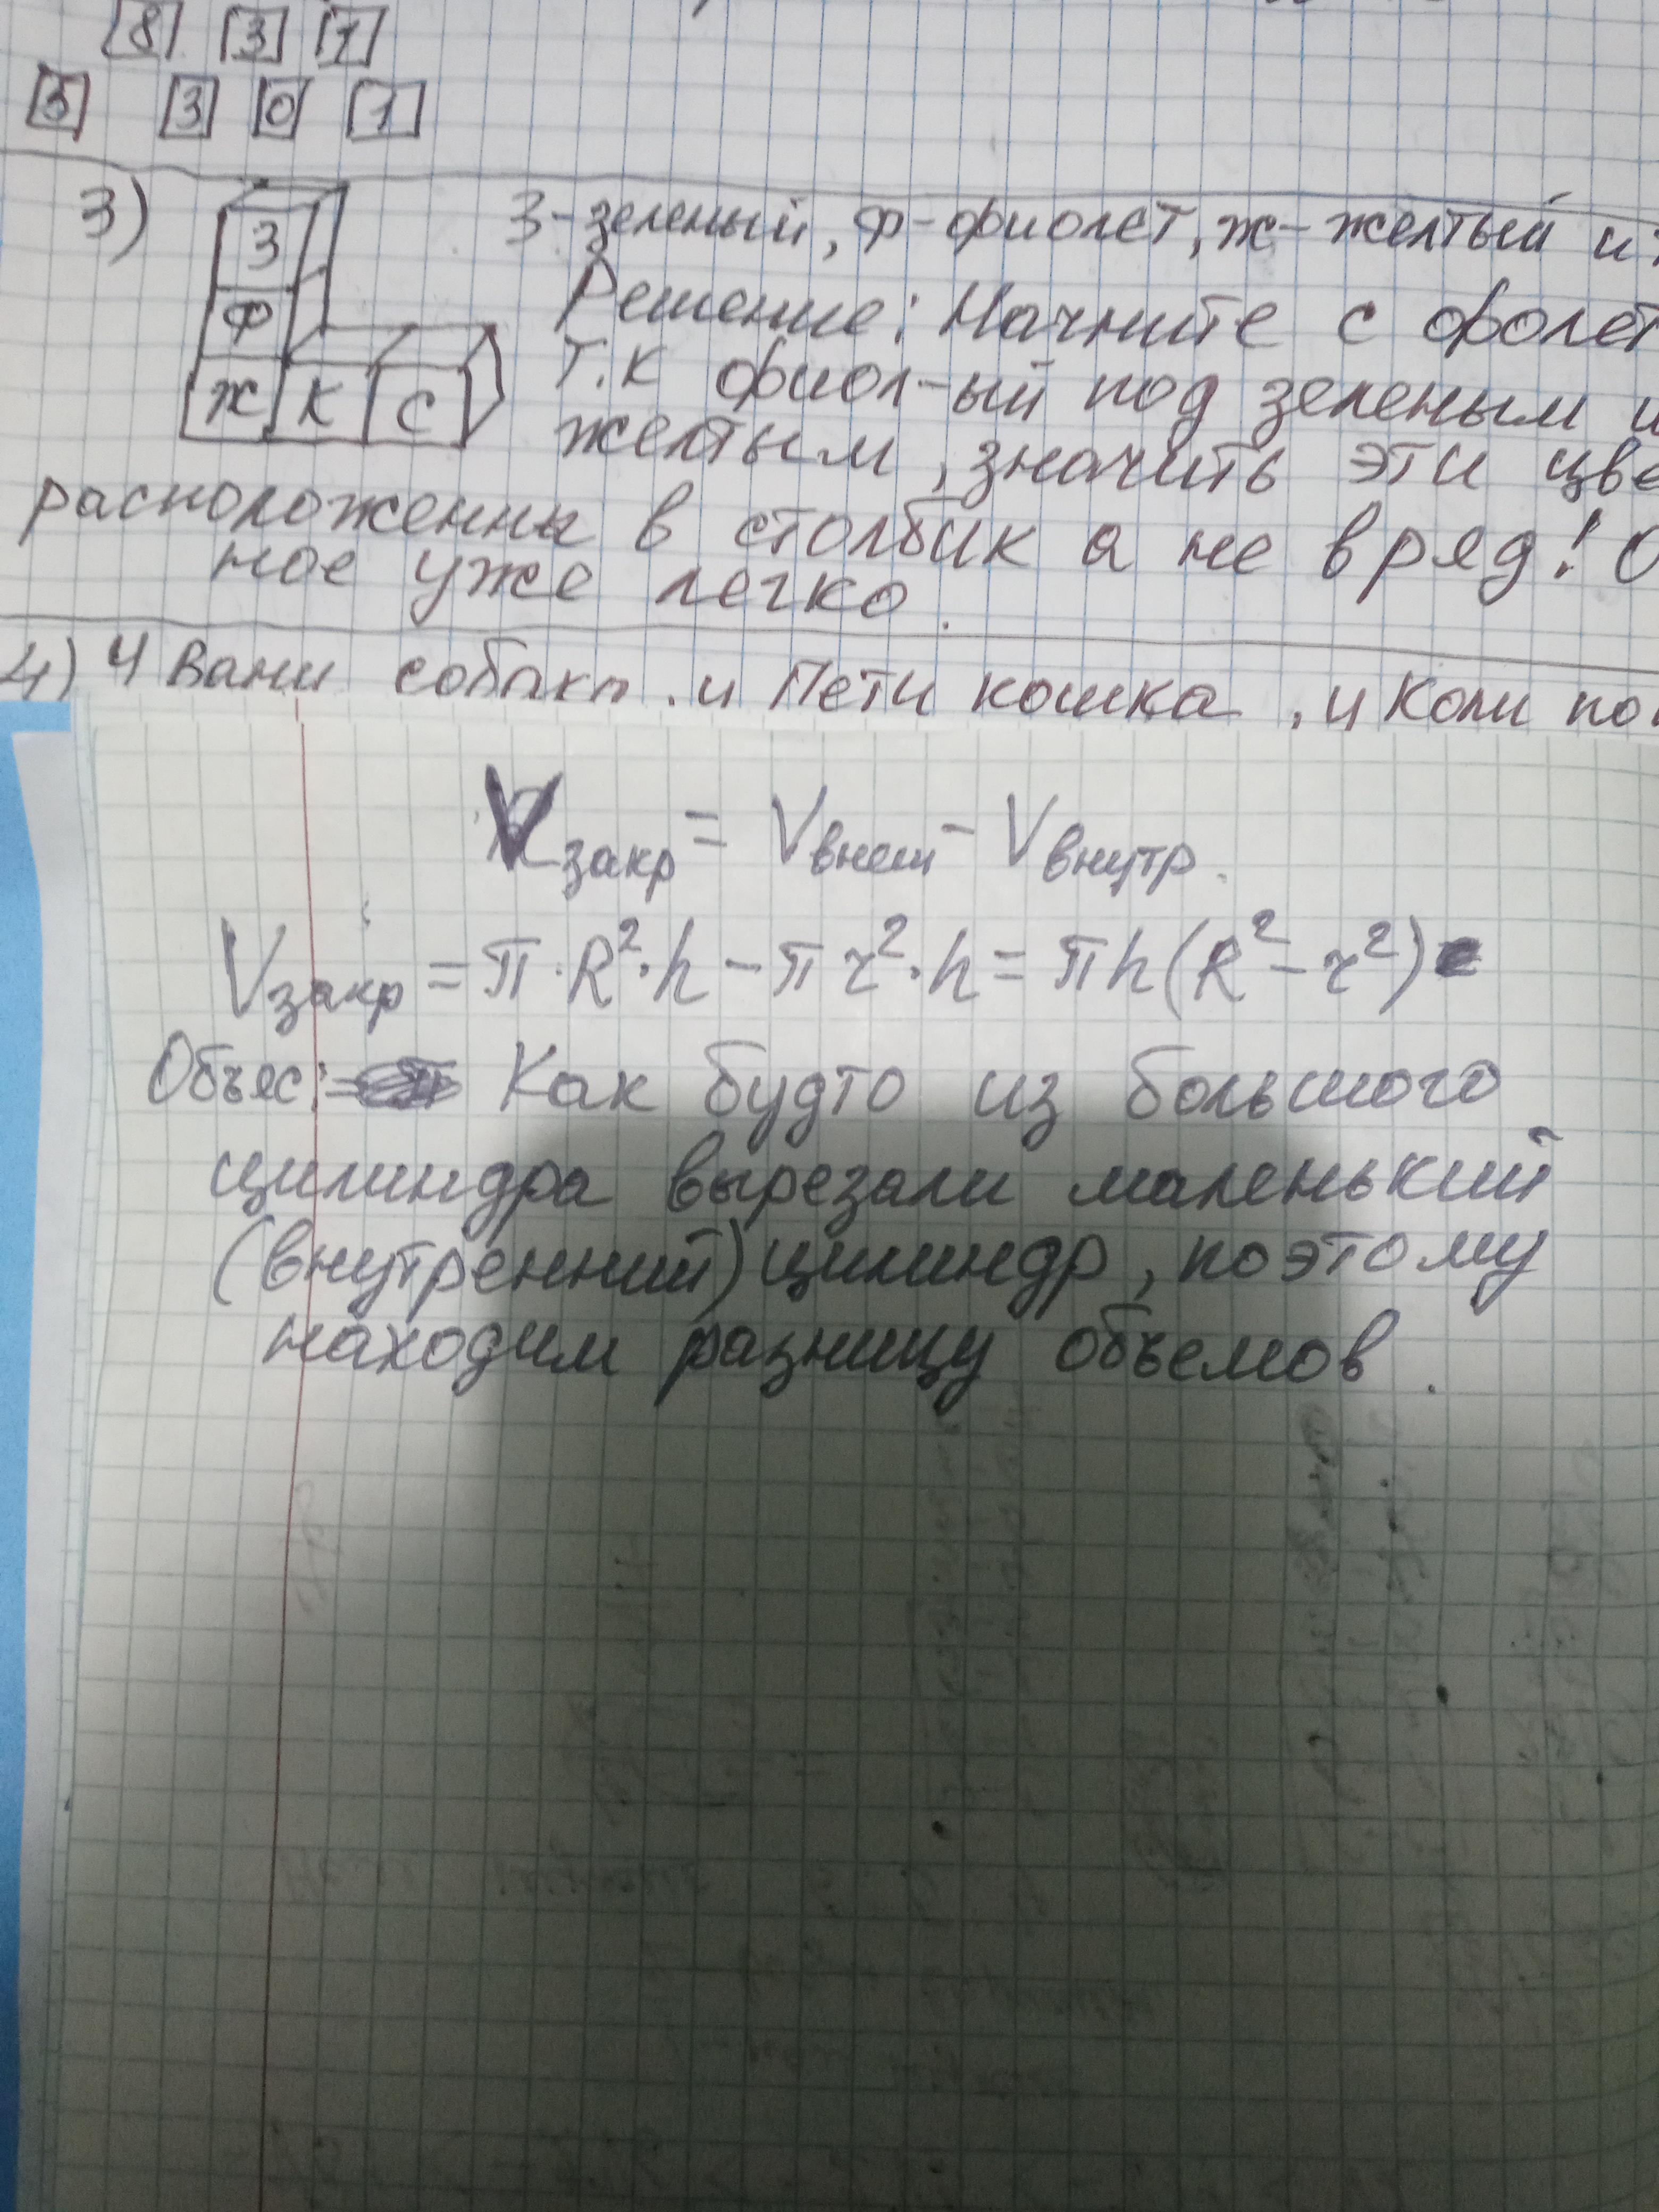 8 3 7
5 3 0 1
3) З Ф Ж К С
З-зеленый, Ф-фиолет, ж-желтый и
Решение: Начните с фолет
Т.к фиол-ый под зеленым и
желтым, значить эти цве
расположенны в столбик а не в ряд! О
ное уже легко.
4) У Вани собака, и Пети кошка, и Коли по
Vзакр = Vвнеш - Vвнутр.
Vзакр = π·R²·h - πr²·h = πh(R²-r²)
Объяс: Как будто из большого
цилиндра вырезали маленький
(внутренний) цилиндр, поэтому
находим разницу объемов.